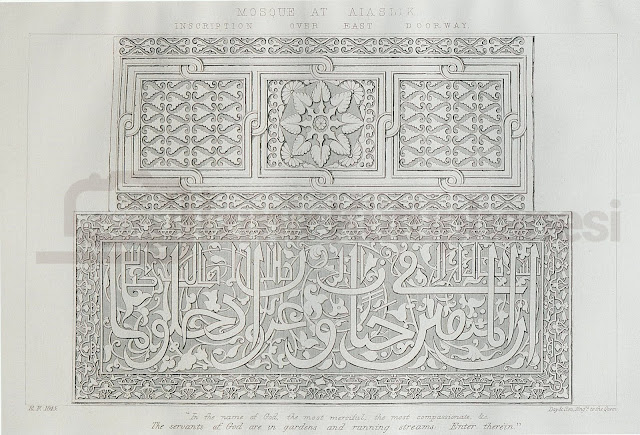 MOSQUE AT AIASLIK
INSCRIPTION OVER EAST DOORWAY
ان المتقين في جنات وعيون ادخلوها
Day & Son, Lith.rs to the Queen
"In the name of God, the most merciful, the most compassionate, &c.
The servants of God are in gardens and running streams. Enter therein."